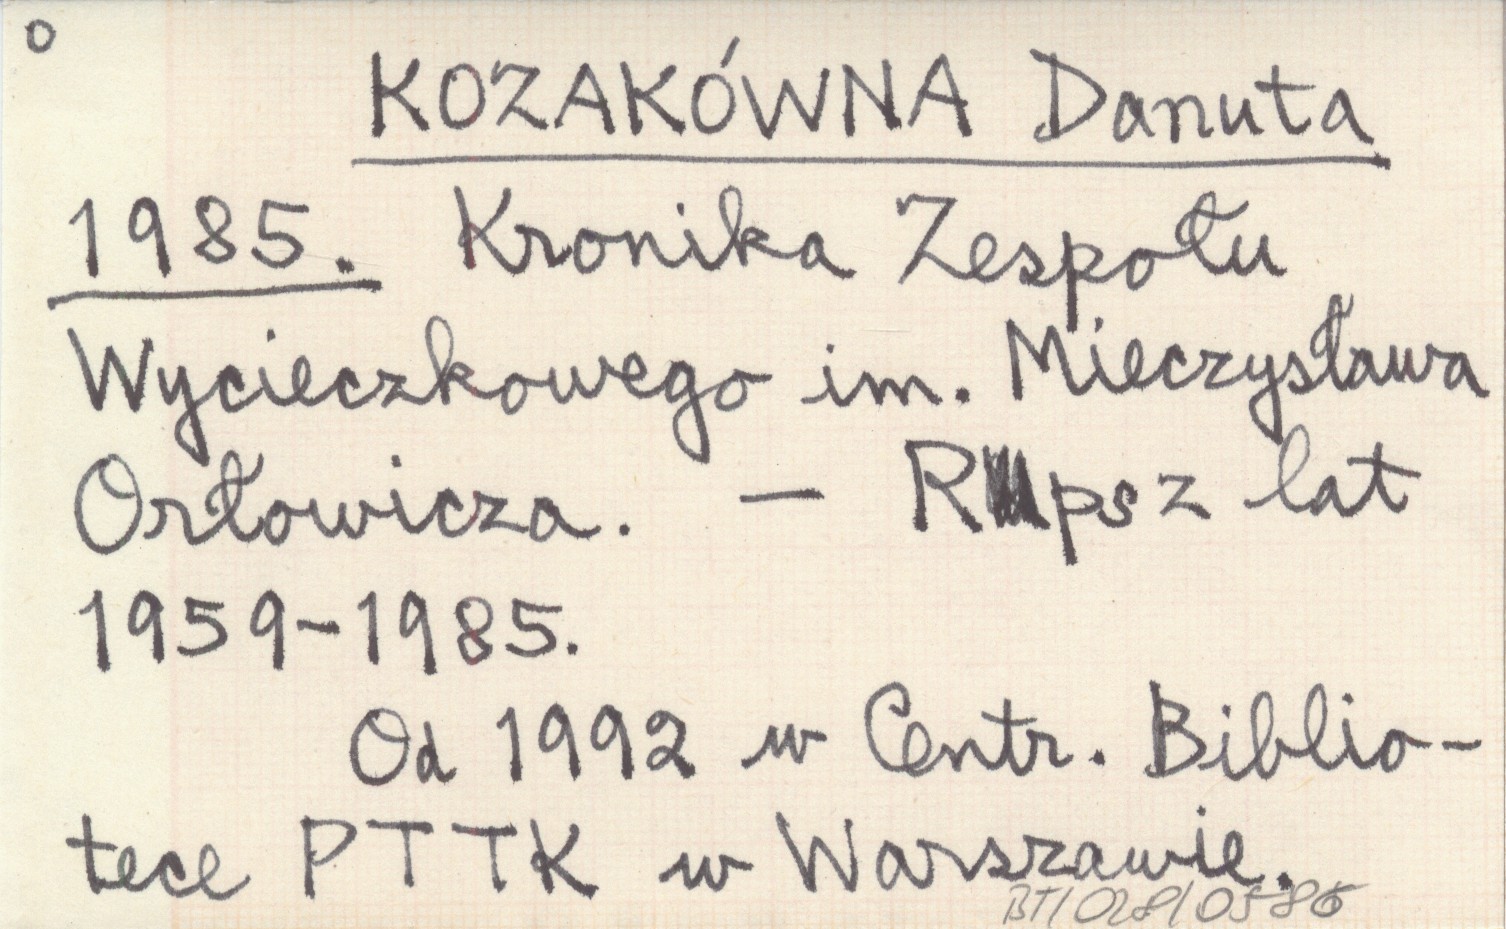 o
KOZAKÓWNA Danuta
1985. Kronika Zespołu
Wycieczkowego im. Mieczysława
Orłowicza. — Rps z lat
1959-1985.
Od 1992 w Centr. Biblio-
tece PTTK w Warszawie.
BT/028/0586